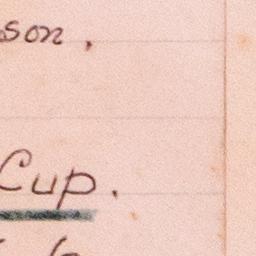 son,
Cup.